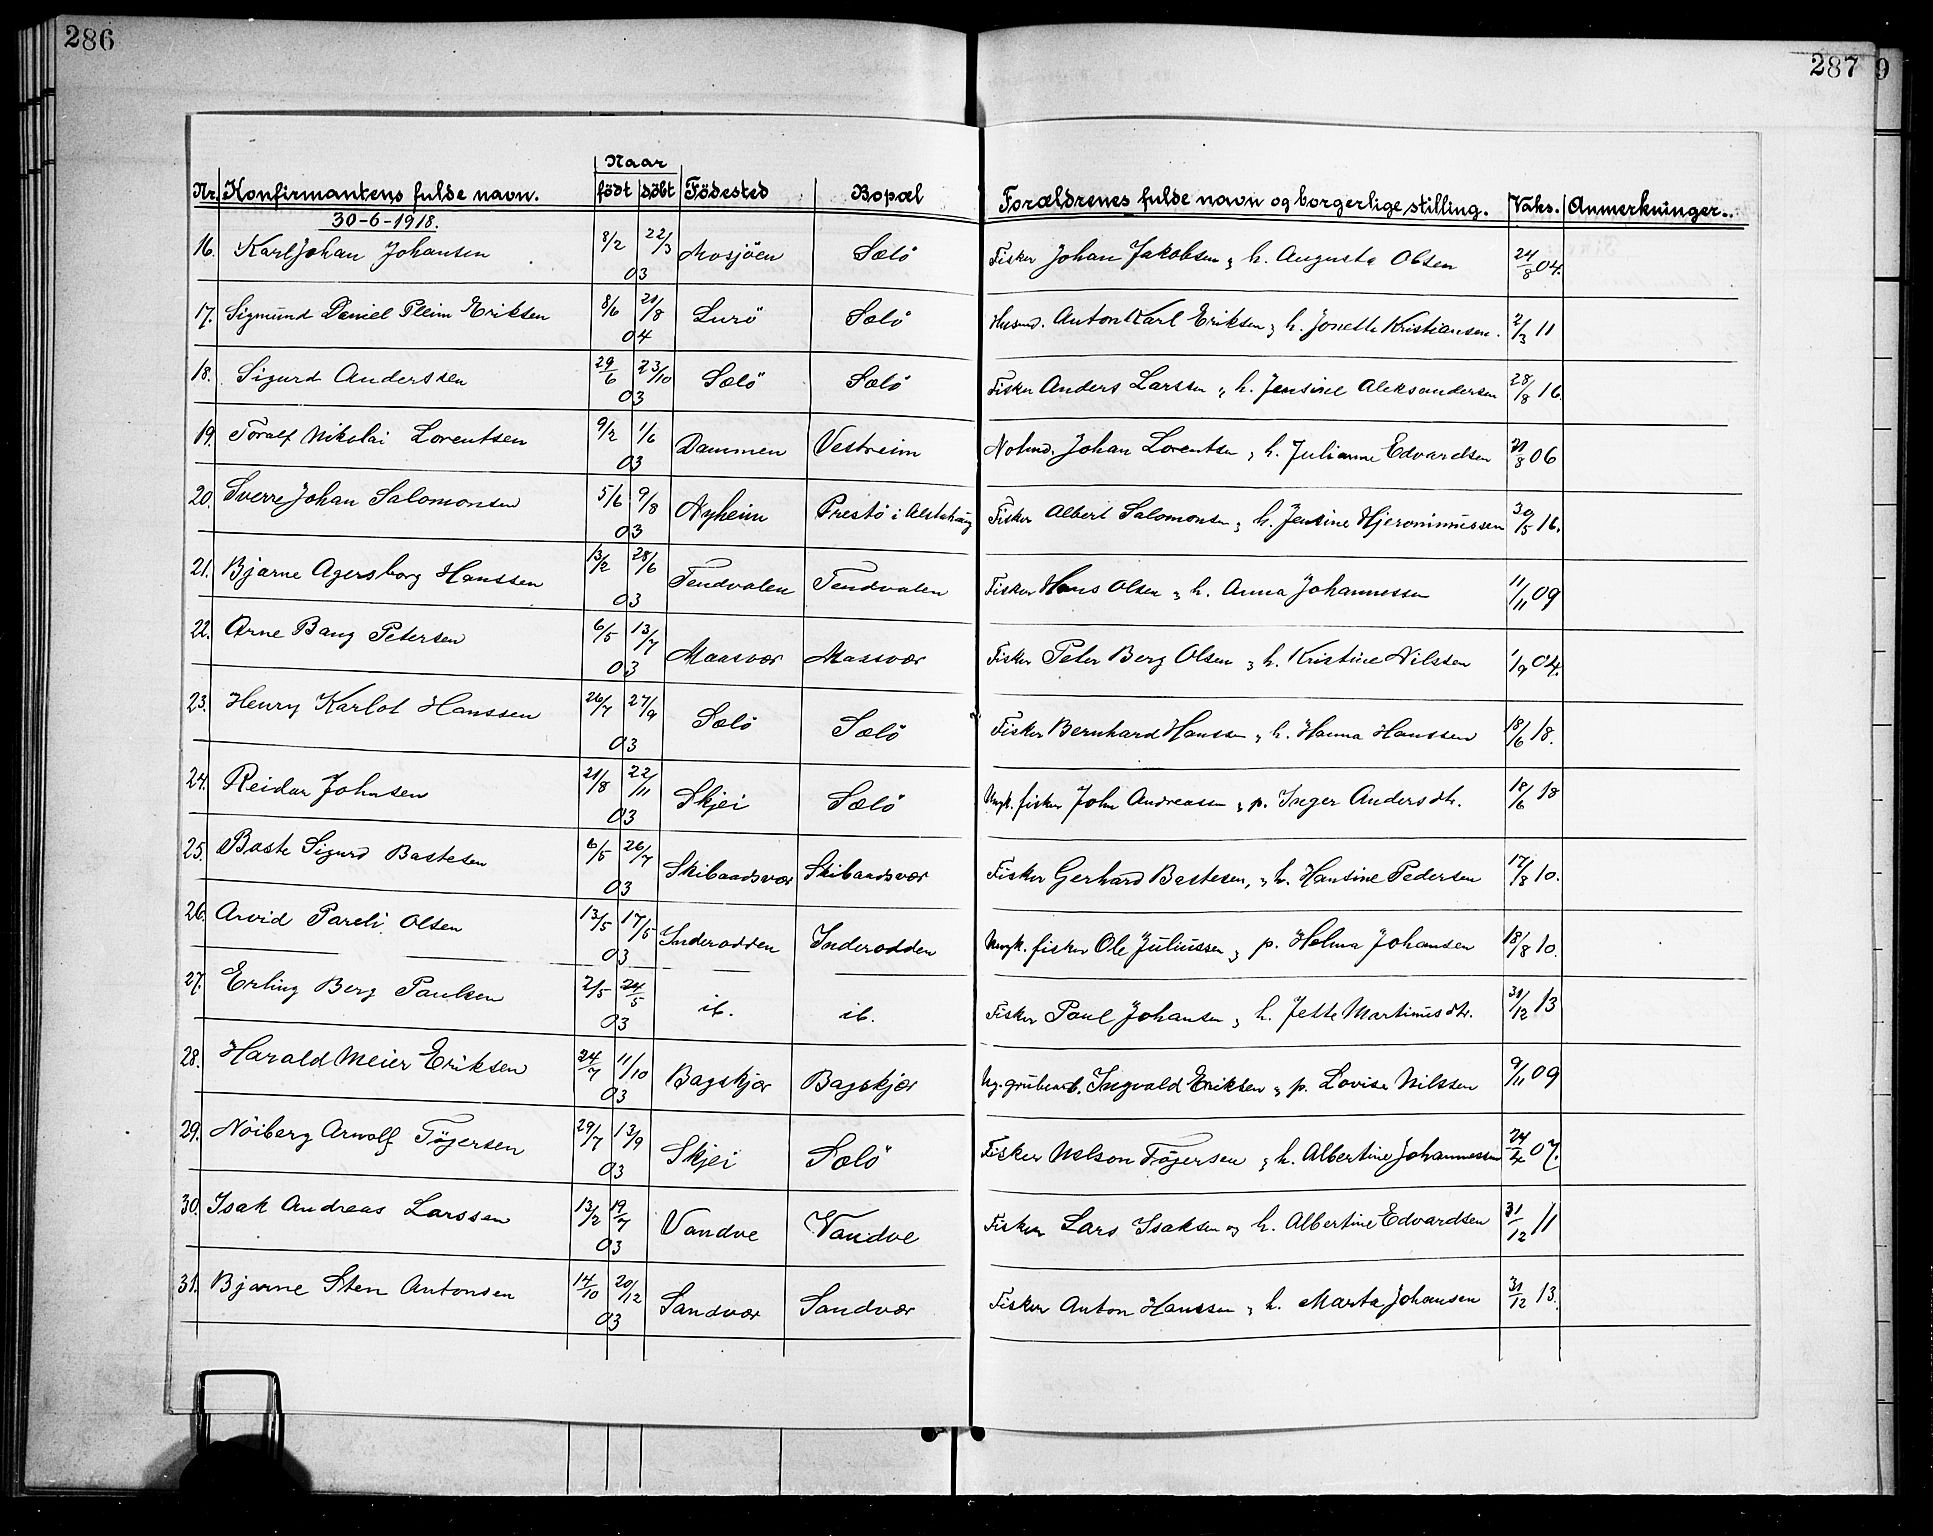 286
287
9
Naar
Nr. Konfirmantens fulde navn. födt döbt Födested Bopæl Forældrenes fulde navn og borgerlige stilling. Vaks. Anmerkninger.
30-6-1918.
16. Karl Johan Johansen 8/2 22/3 03 Mosjöen Sælö Fisker Johan Jakobsen og h. Augusta Olsen 24/8 04.
17. Sigmund Daniel Pleim Eriksen 8/6 21/8 04 Lurö Sælö Husmd. Anton Karl Eriksen og h. Jonette Kristiansen. 2/3 11
18. Sigurd Anderssen 29/6 23/10 03 Sælö Sælö Fisker Anders Larssen og h. Jensine Aleksandersen 28/8 16.
19. Toralf Nikolai Lorentsen 9/2 1/6 03 Dammen Vestreim Notmd. Johan Lorentsen og h. Julianne Edvardsen 06
20. Sverre Johan Salomonsen 5/6 9/8 03 Nyheim Prestö i Alstahaug Fisker Albert Salomonsen og h. Jensine Hjeronimussen 30/5 16.
21. Bjarne Agersborg Hanssen 13/2 28/6 03 Tendvalen Tendvalen Fisker Hans Olsen og h. Anna Johannessen 11/11 09
22. Arne Bang Petersen 6/5 13/7 03 Maasvær Maasvær Fisker Peter Berg Olsen og h. Kristine Nilssen 1/9 04.
23. Henry Karlot Hanssen 26/7 27/9 03 Sælö Sælö Fisker Bernhard Hanssen og h. Hanna Hanssen 18/6 18.
24. Reidar Johnsen 21/8 22/11 03 Skjei Sælö Ungk. fisker John Andreassen og p. Inger Andersdtr. 18/6 18
25. Baste Sigurd Bastesen 6/5 26/7 03 Skibaadsvær Skibaadsvær Fisker Gerhard Bastesen, og h. Hansine Pedersen 17/8 10.
26. Arvid Pareli Olsen 13/5 17/5 03 Inderodden Inderodden Ungk. fisker Ole Juliussen og p. Helma Johansen 18/8 10.
27. Erling Berg Paulsen 2/5 24/5 03 ib. ib. Fisker Paul Johansen og h. Jette Martinusdtr. 31/12 13
28. Harald Meier Eriksen 24/7 11/10 03 Bagskjær Bagskjær Ug. grubearb. Ingvald Eriksen og p. Lovise Nilssen 9/11 09
29. Nöiberg Arnolf Töjersen 29/7 13/9 03 Skjei Sælö Fisker Nelson Töjersen og h. Albertine Johannessen 24/4 07.
30. Isak Andreas Larssen 13/2 19/7 03 Vandve Vandve Fisker Lars Isaksen og h. Albertine Edvardsen 31/12 11
31. Bjarne Sten Antonsen 14/10 20/12 03 Sandvær Sandvær Fisker Anton Hanssen og h. Marta Johansen 31/12 13.